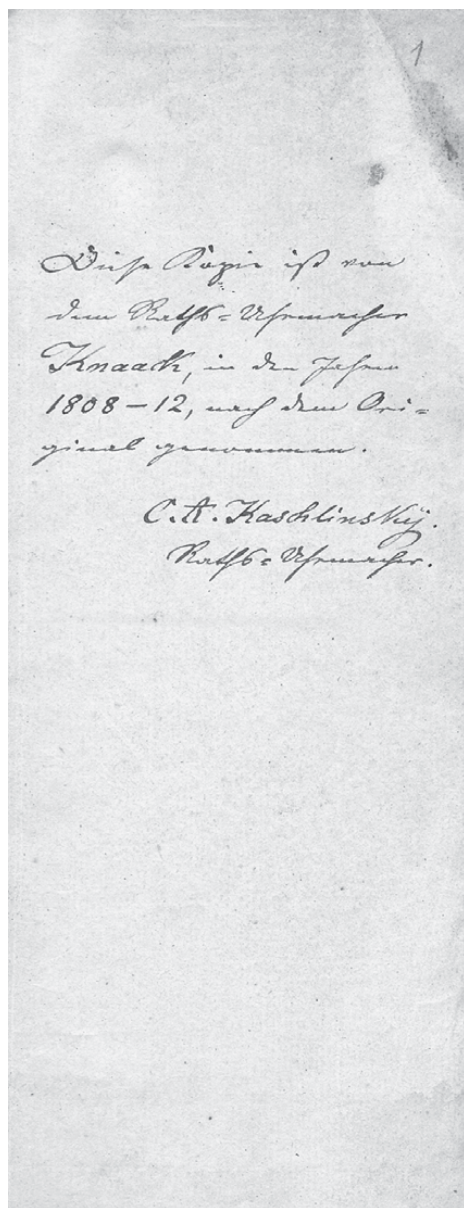 1
Diese Kopie ist von
dem Raths-Uhrmacher
Knaack, in den Jahren
1808–12, nach dem Ori-
ginal genommen.
C. A. Kaschlinsky.
Raths-Uhrmacher.